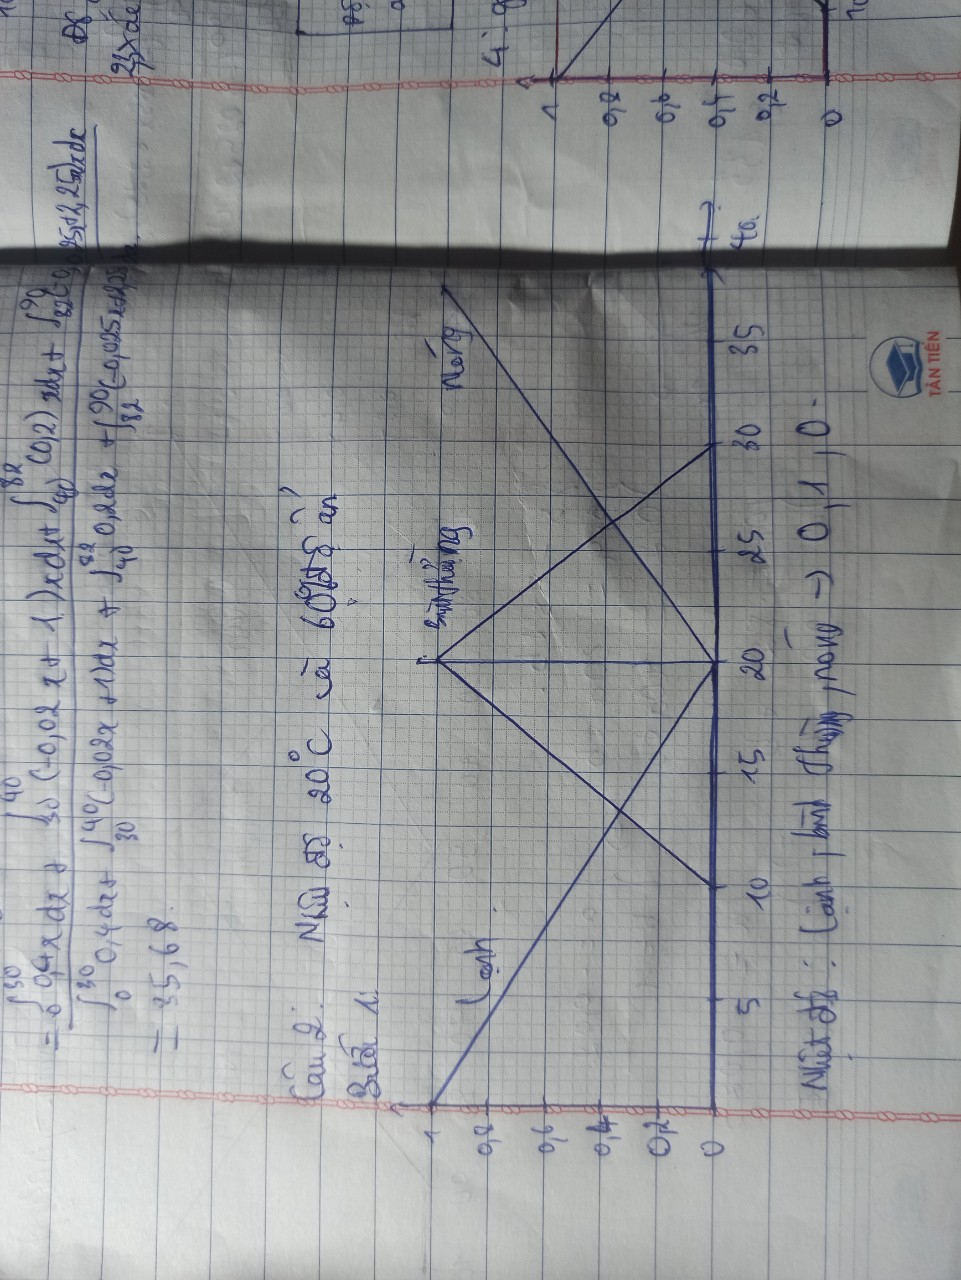 = ∫₀³⁰ 0,4xdx + ∫₃₀⁴⁰ (-0,02x + 1)xdx + ∫₄₀⁸² (0,2)xdx + ∫₈₂⁹⁰ (-0,025x+2,25)xdx
∫₀³⁰ 0,4dx + ∫₃₀⁴⁰ (-0,02x + 1)dx + ∫₄₀⁸² 0,2dx + ∫₈₂⁹⁰ (-0,025x
= 35,68.
Câu 2. Nhiệt độ 20°C và 60% độ ẩn
Bước 1:
1
Lạnh
Bình thường
Nóng
0,8
0,6
0,4
0,2
0
5
10
15
20
25
30
35
40
Nhiệt độ: Lạnh, bình thường, nóng → 0, 1, 0.
TÂN TIẾN
1
0,8
0,6
0,4
0,2
0